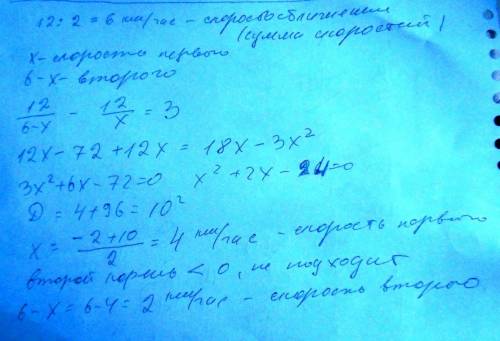 12 : 2 = 6 км/час - скорость сближения
(сумма скоростей)
x - скорость первого
6-x - второго
12/6-x - 12/x = 3
12x - 72 + 12x = 18x - 3x²
3x² + 6x - 72 = 0 x² + 2x - 24 = 0
D = 4 + 96 = 10²
x = -2+10/2 = 4 км/час - скорость первого
второй корень < 0, не подходит
6-x = 6-4 = 2 км/час - скорость второго